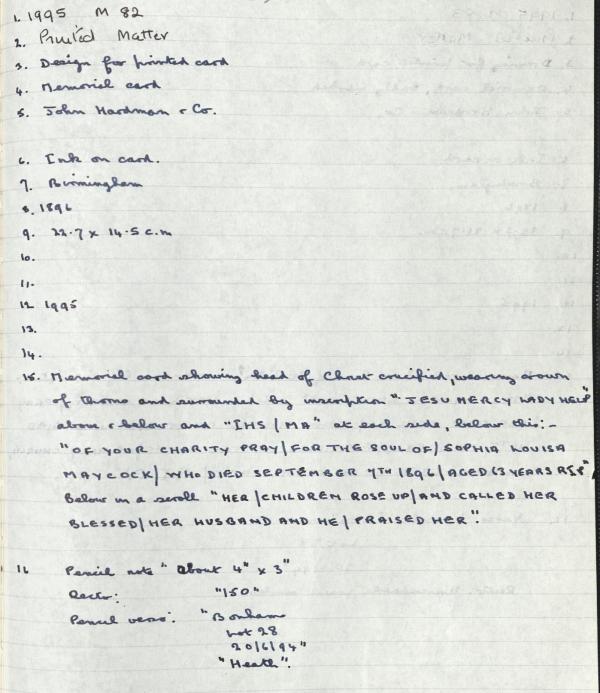 1. 1995 M 82
2. Printed Matter
3. Design for printed card
4. Memorial card
5. John Hardman & Co.
6. Ink on card.
7. Birmingham
8. 1896
9. 22.7 x 14.5 c.m
10.
11.
12 1995
13.
14.
15. Memorial card showing head of Christ crucified, wearing crown
of thorns and surrounded by inscription "JESU MERCY LADY HELP"
above & below and "IHS / MA" at each side, below this:-
"OF YOUR CHARITY PRAY / FOR THE SOUL OF / SOPHIA LOUISA
MAYCOCK / WHO DIED SEPTEMBER 7TH 1896 / AGED 63 YEARS RIP"
Below in a scroll "HER / CHILDREN ROSE UP / AND CALLED HER
BLESSED / HER HUSBAND AND HE / PRAISED HER".
16 Pencil note "about 4" x 3"
Recto: "150"
Pencil verso: "Bonhams
Lot 28
20/6/94"
"Heath".